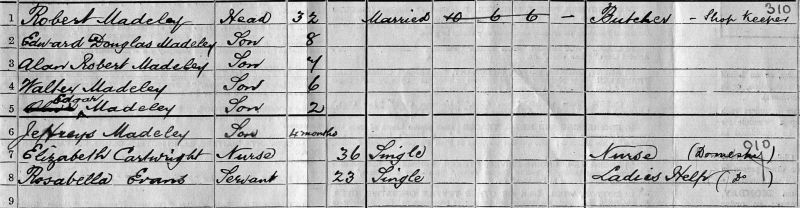 310
1 Robert Madeley Head 32 Married 10 6 6 – Butcher – Shop Keeper
2 Edward Douglas Madeley Son 8
3 Alan Robert Madeley Son 7
4 Walter Madeley Son 6
5 Edgar Madeley Son 2
6 Jeffreys Madeley Son 4 months
010
7 Elizabeth Cartwright Nurse 36 Single Nurse (Domestic)
8 Rosabella Evans Servant 23 Single Ladies Help (Do
9